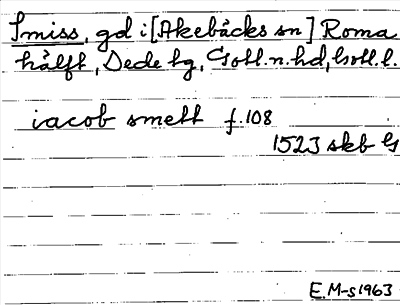 Smiss, gd i [Akebäcks sn] Roma
hälft, Dede hg, Gotl. n. hd, Gotl. l.
iacob smett f. 108
1523 skb G
E.M-s 1963